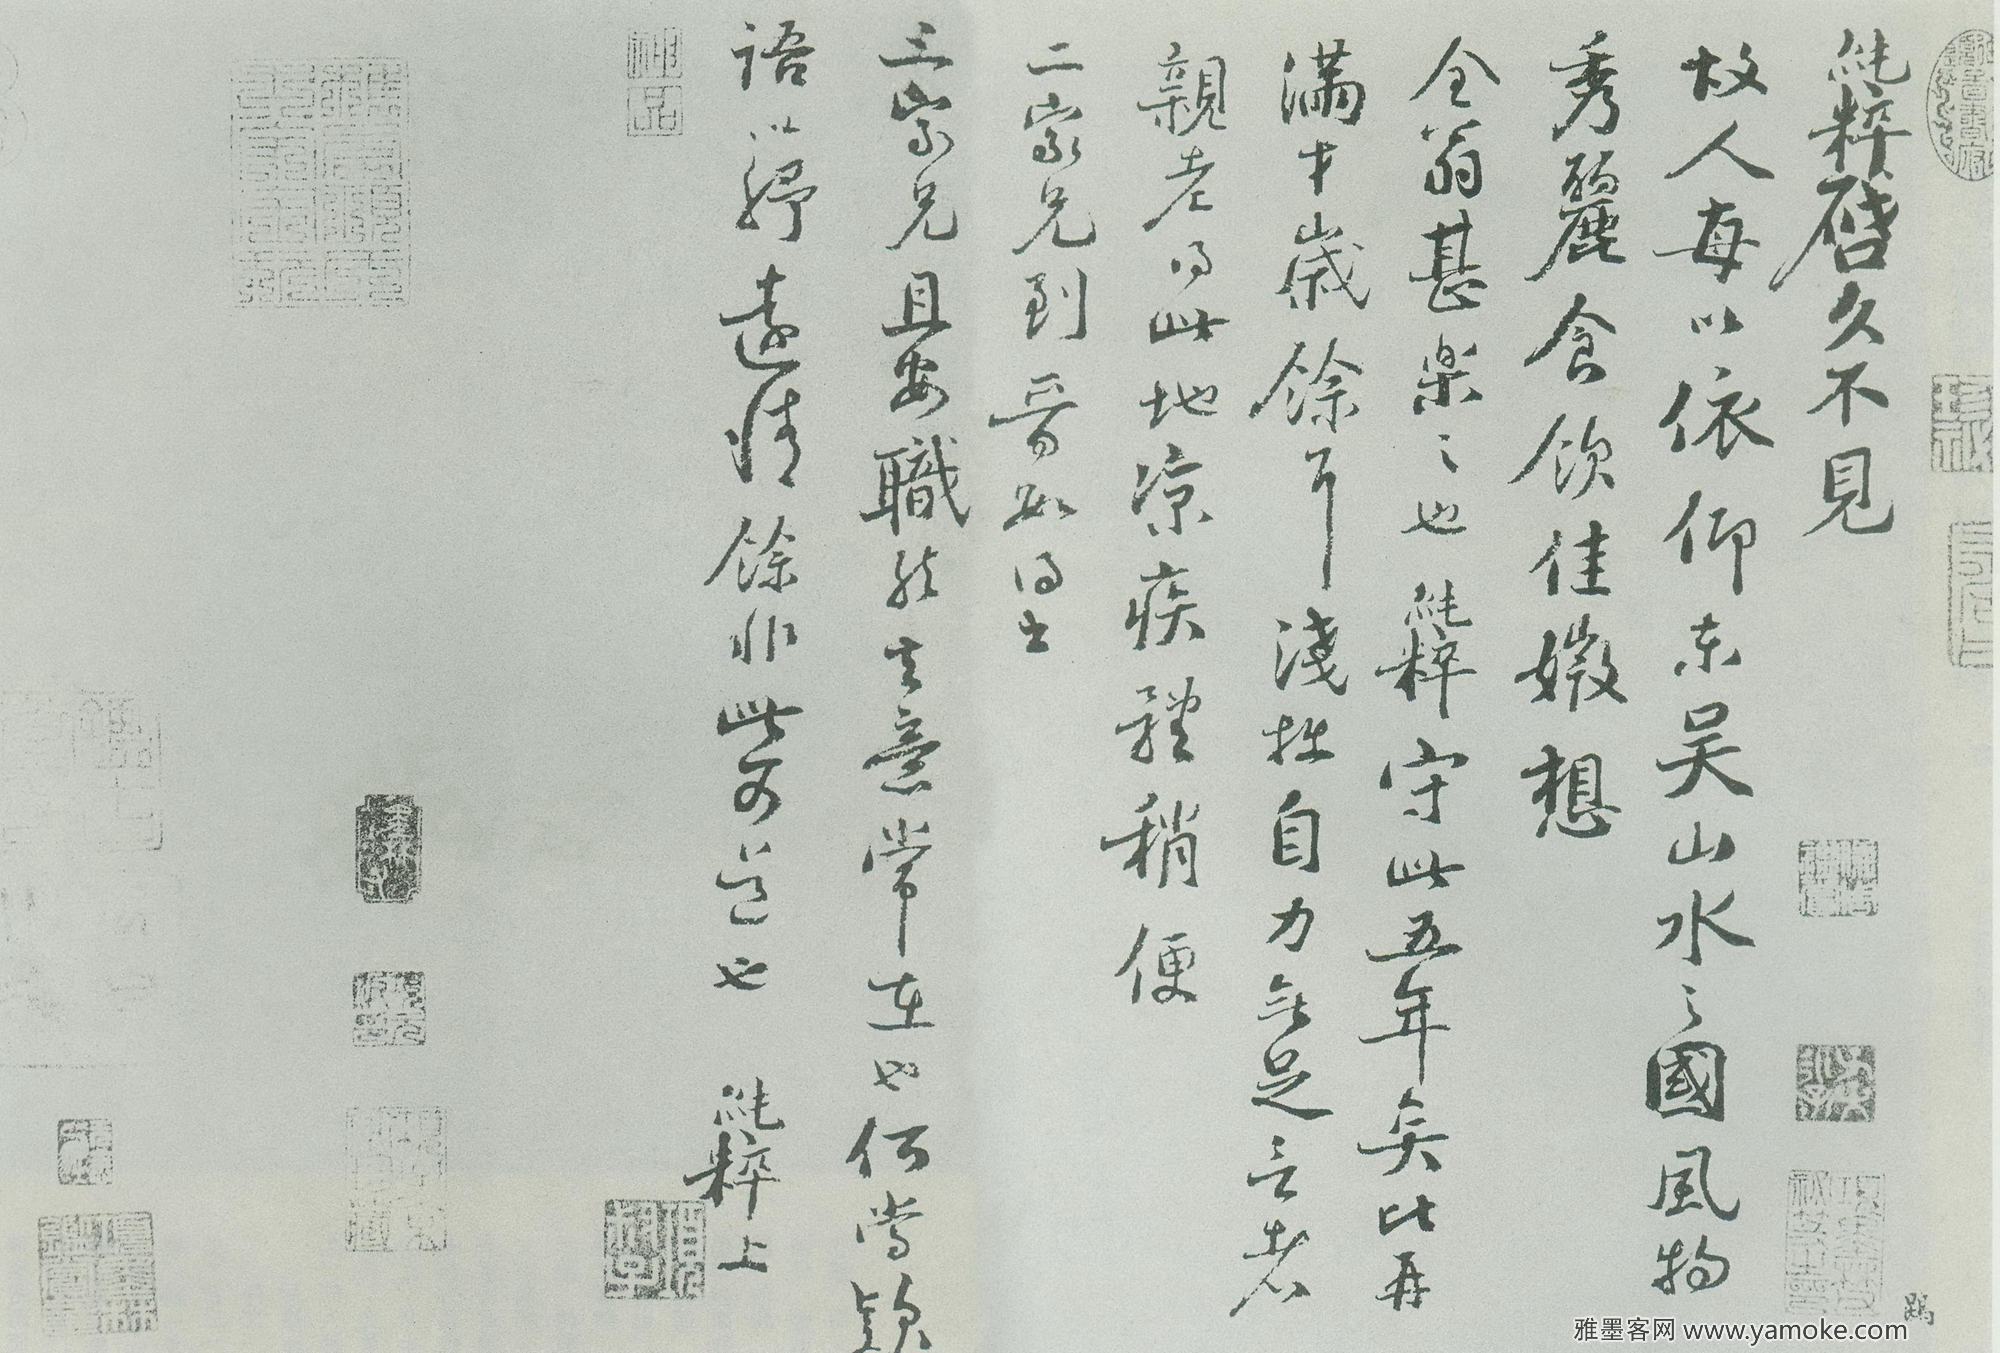 純粹啓久不見
故人每以依仰東吴山水之國風物
秀麗食飲佳媺想
全翁甚樂之也純粹守此五年矣比再
滿才歲餘耳淺拙自力無足言者
親老得此地凉疾稍便
二家兄到晉如得土
三家兄且安職然其意常在也何當欵
語以紓遠情餘非此可道也 純粹上
神品
鵾
雅墨客网 www.yamoke.com